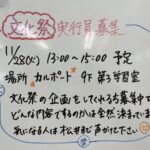 文化祭 実行員募集
11/28(火) 13:00~15:00 予定
場所 カルポート 9F 第3学習室
文化祭の企画をしてくれる方募集中です
どんな内容でするのかは全然決まっていません
気になる人は松井まで声かけて下さい